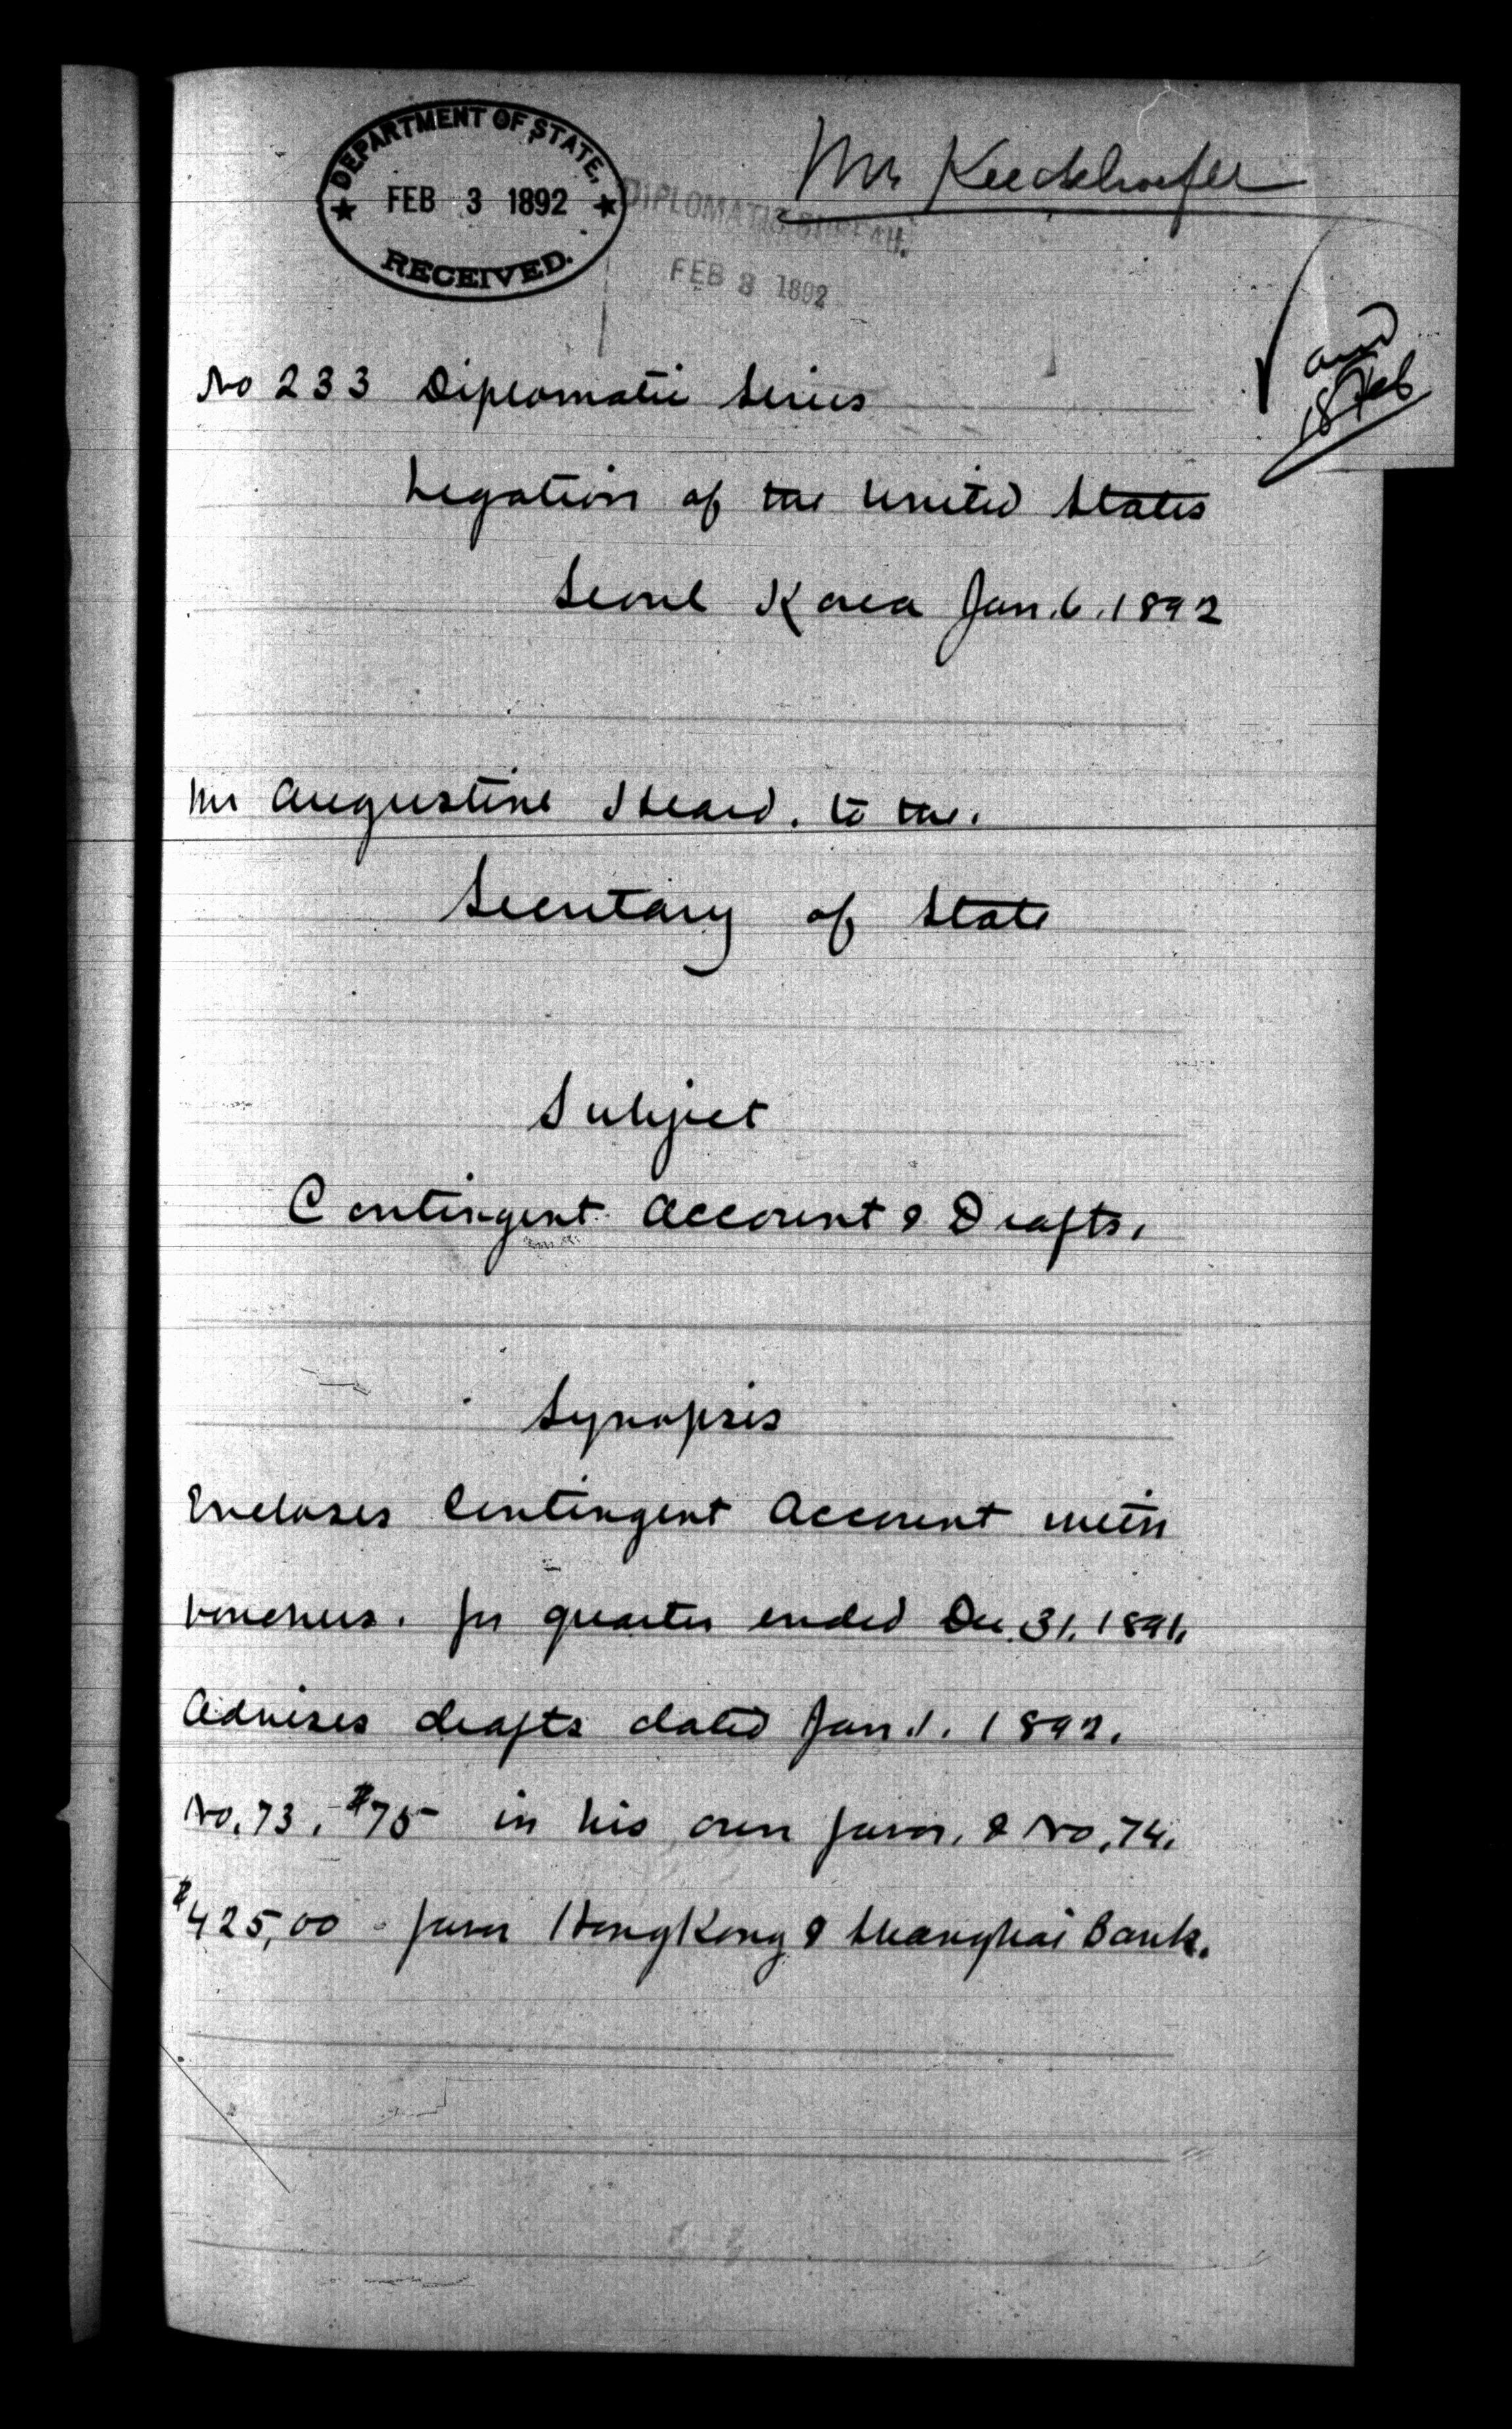 DEPARTMENT OF STATE,
FEB 3 1892
RECEIVED.
Mr Keeckhoefer
DIPLOMATIC BUREAU.
FEB 3 1892
18 Feb
No 233 Diplomatic Series
Legation of the United States
Seoul Korea Jan. 6. 1892
Mr Augustine Heard. to the.
Secretary of State
Subject
Contingent Account & Drafts.
Synopsis
Encloses Contingent Account with
vouchers. for quarter ended Dec. 31. 1891.
Advises drafts dated Jan. 1. 1892.
No. 73. $75- in his own favor. & No. 74.
$425.00 - favor HongKong & Shanghai Bank.